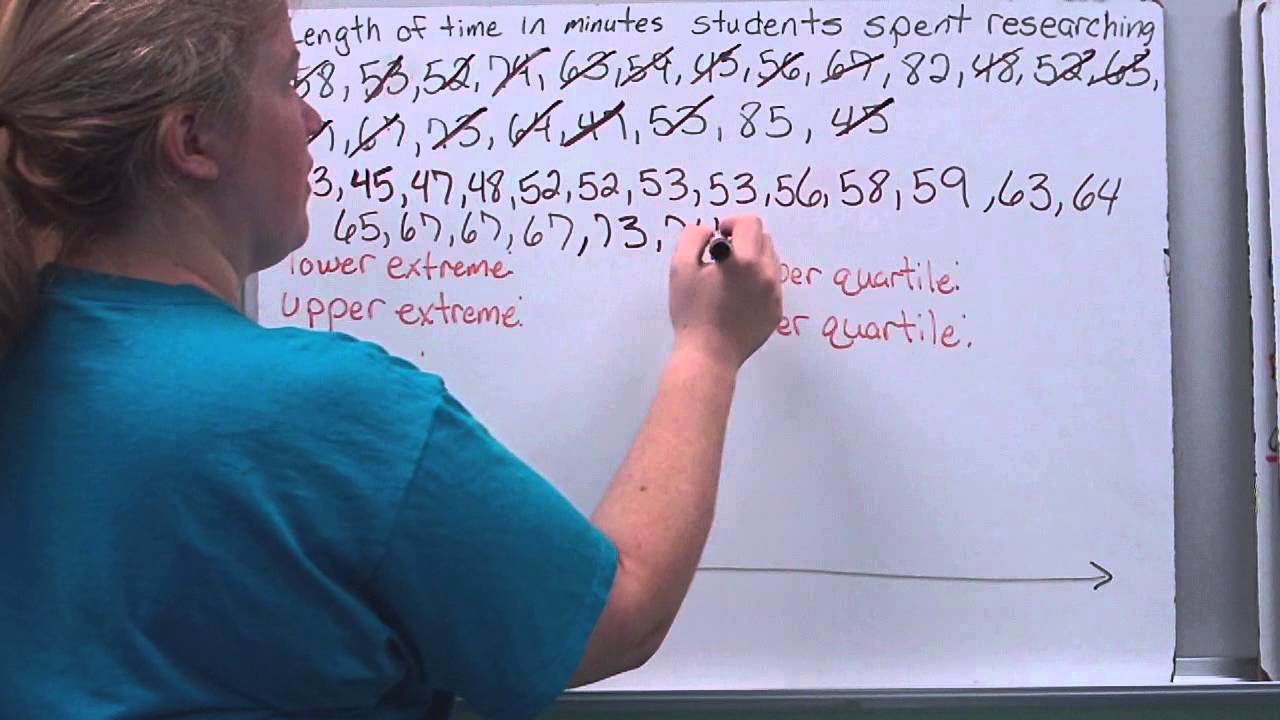 Length of time in minutes students spent researching
58, 53, 52, 74, 63, 59, 45, 56, 67, 82, 48, 52, 65,
67, 73, 64, 47, 53, 85, 43
45, 47, 48, 52, 52, 53, 53, 56, 58, 59, 63, 64
65, 67, 67, 67, 73,
lower extreme:
upper extreme:
quartile:
quartile: